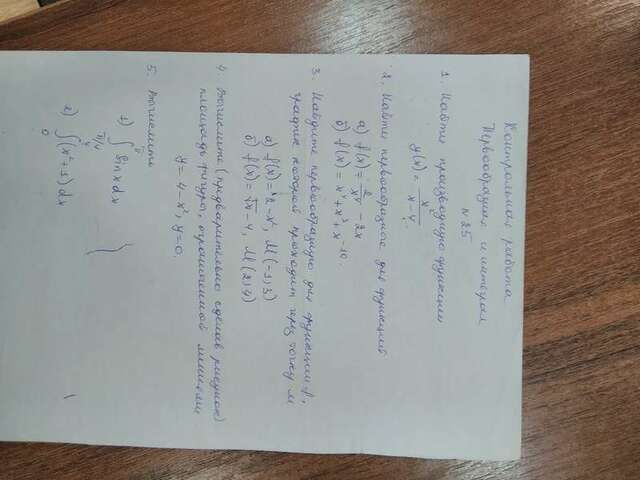 Контрольная работа
Первообразная и интеграл
№ 25
1. Найти производную функции
y(x) = x² / (x-4)
2. Найти первообразное для функций
а) f(x) = 2/√x - 2x
б) f(x) = x⁴ + x² + x - 10.
3. Найдите первообразную для функции f,
график которой проходит через точку M
а) f(x) = 2 - x², M(-1; 3)
б) f(x) = √x - 4, M(2; 4)
4. Вычислите (предварительно сделав рисунок)
площадь фигуры, ограниченной линиями,
y = 4 - x², y = 0.
5. Вычислить
1) ∫ sin x dx
π/4
2) ∫ (x² + 1) dx
0